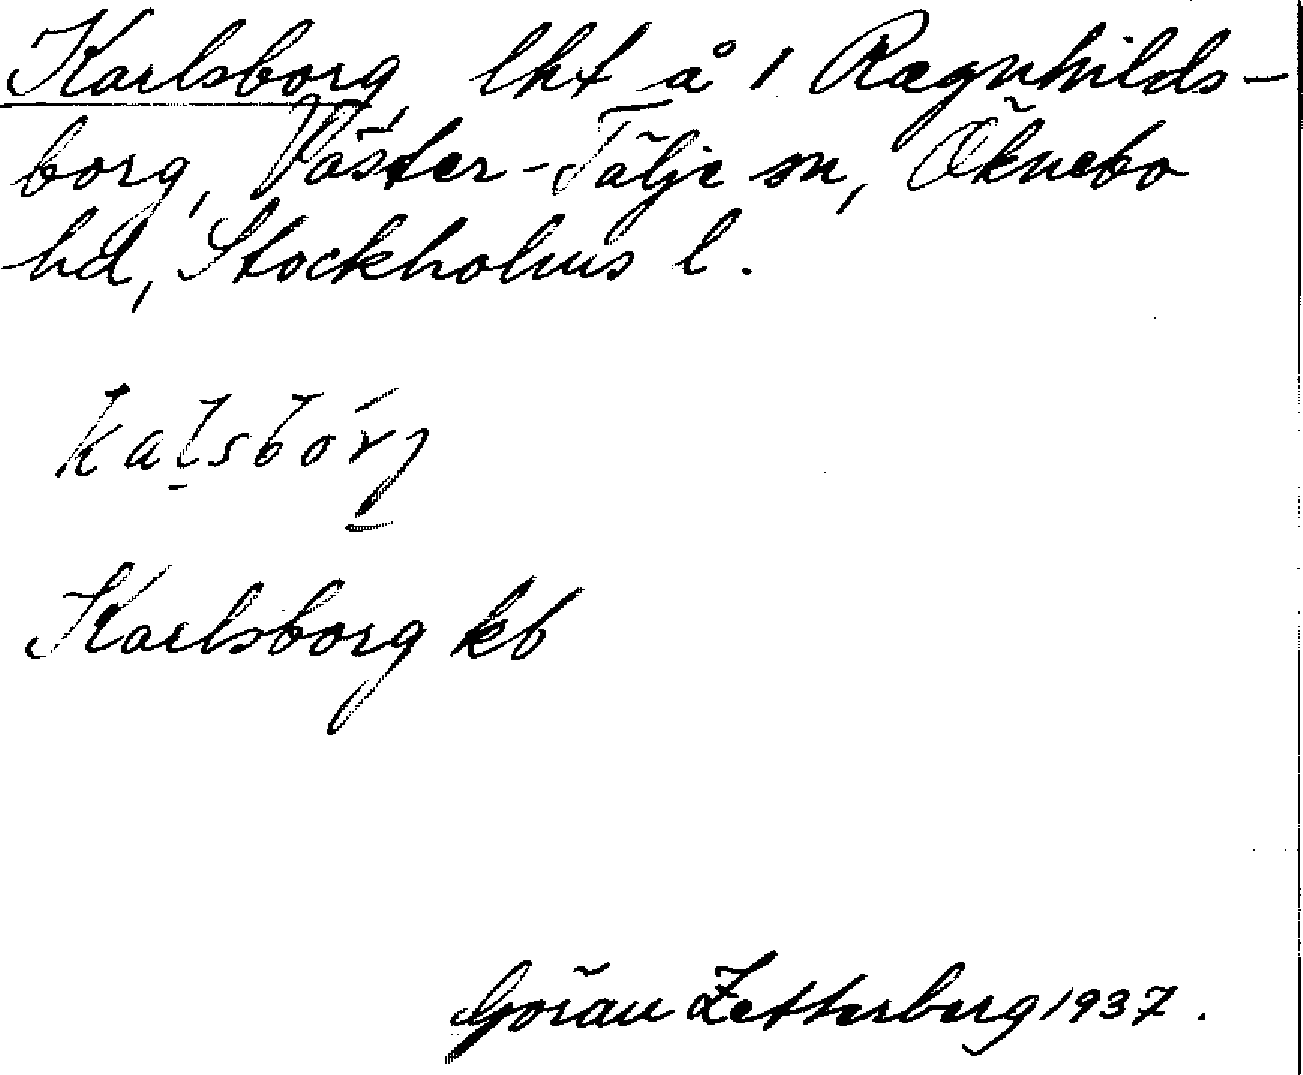 Karlsborg, lht å 1 Ragnhilds-
borg, Väster-Tälje sn, Öknebo
hd, Stockholms l.
kaḷsbórj
Karlsborg kb
Göran Zetterberg 1937.